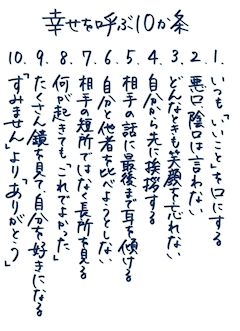 幸せを呼ぶ10か条
1. いつも「いいこと」を口にする
2. 悪口、陰口は言わない
3. どんなときも笑顔を忘れない
4. 自分から先に挨拶する
5. 相手の話に最後まで耳を傾ける
6. 自分と他者を比べようとしない
7. 相手の短所ではなく長所を見る
8. 何が起きても、「これでよかった」
9. たくさん鏡を見て、自分を好きになる
10. 「すみません」より、「ありがとう」